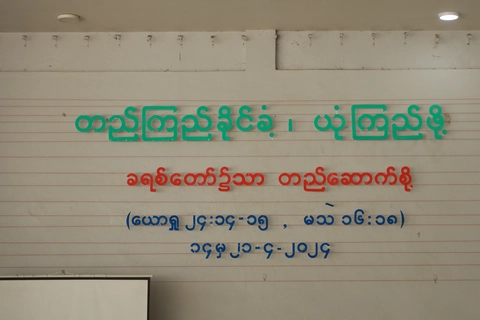 တည်ကြည်ခိုင်ခံ့ ၊ ယုံကြည်ဖို့
ခရစ်တော်၌သာ တည်ဆောက်စို့
(ယောရှု ၂၄:၁၄-၁၅ , မသဲ ၁၆:၁၈)
၁၄မှ၂၁-၄-၂၀၂၄